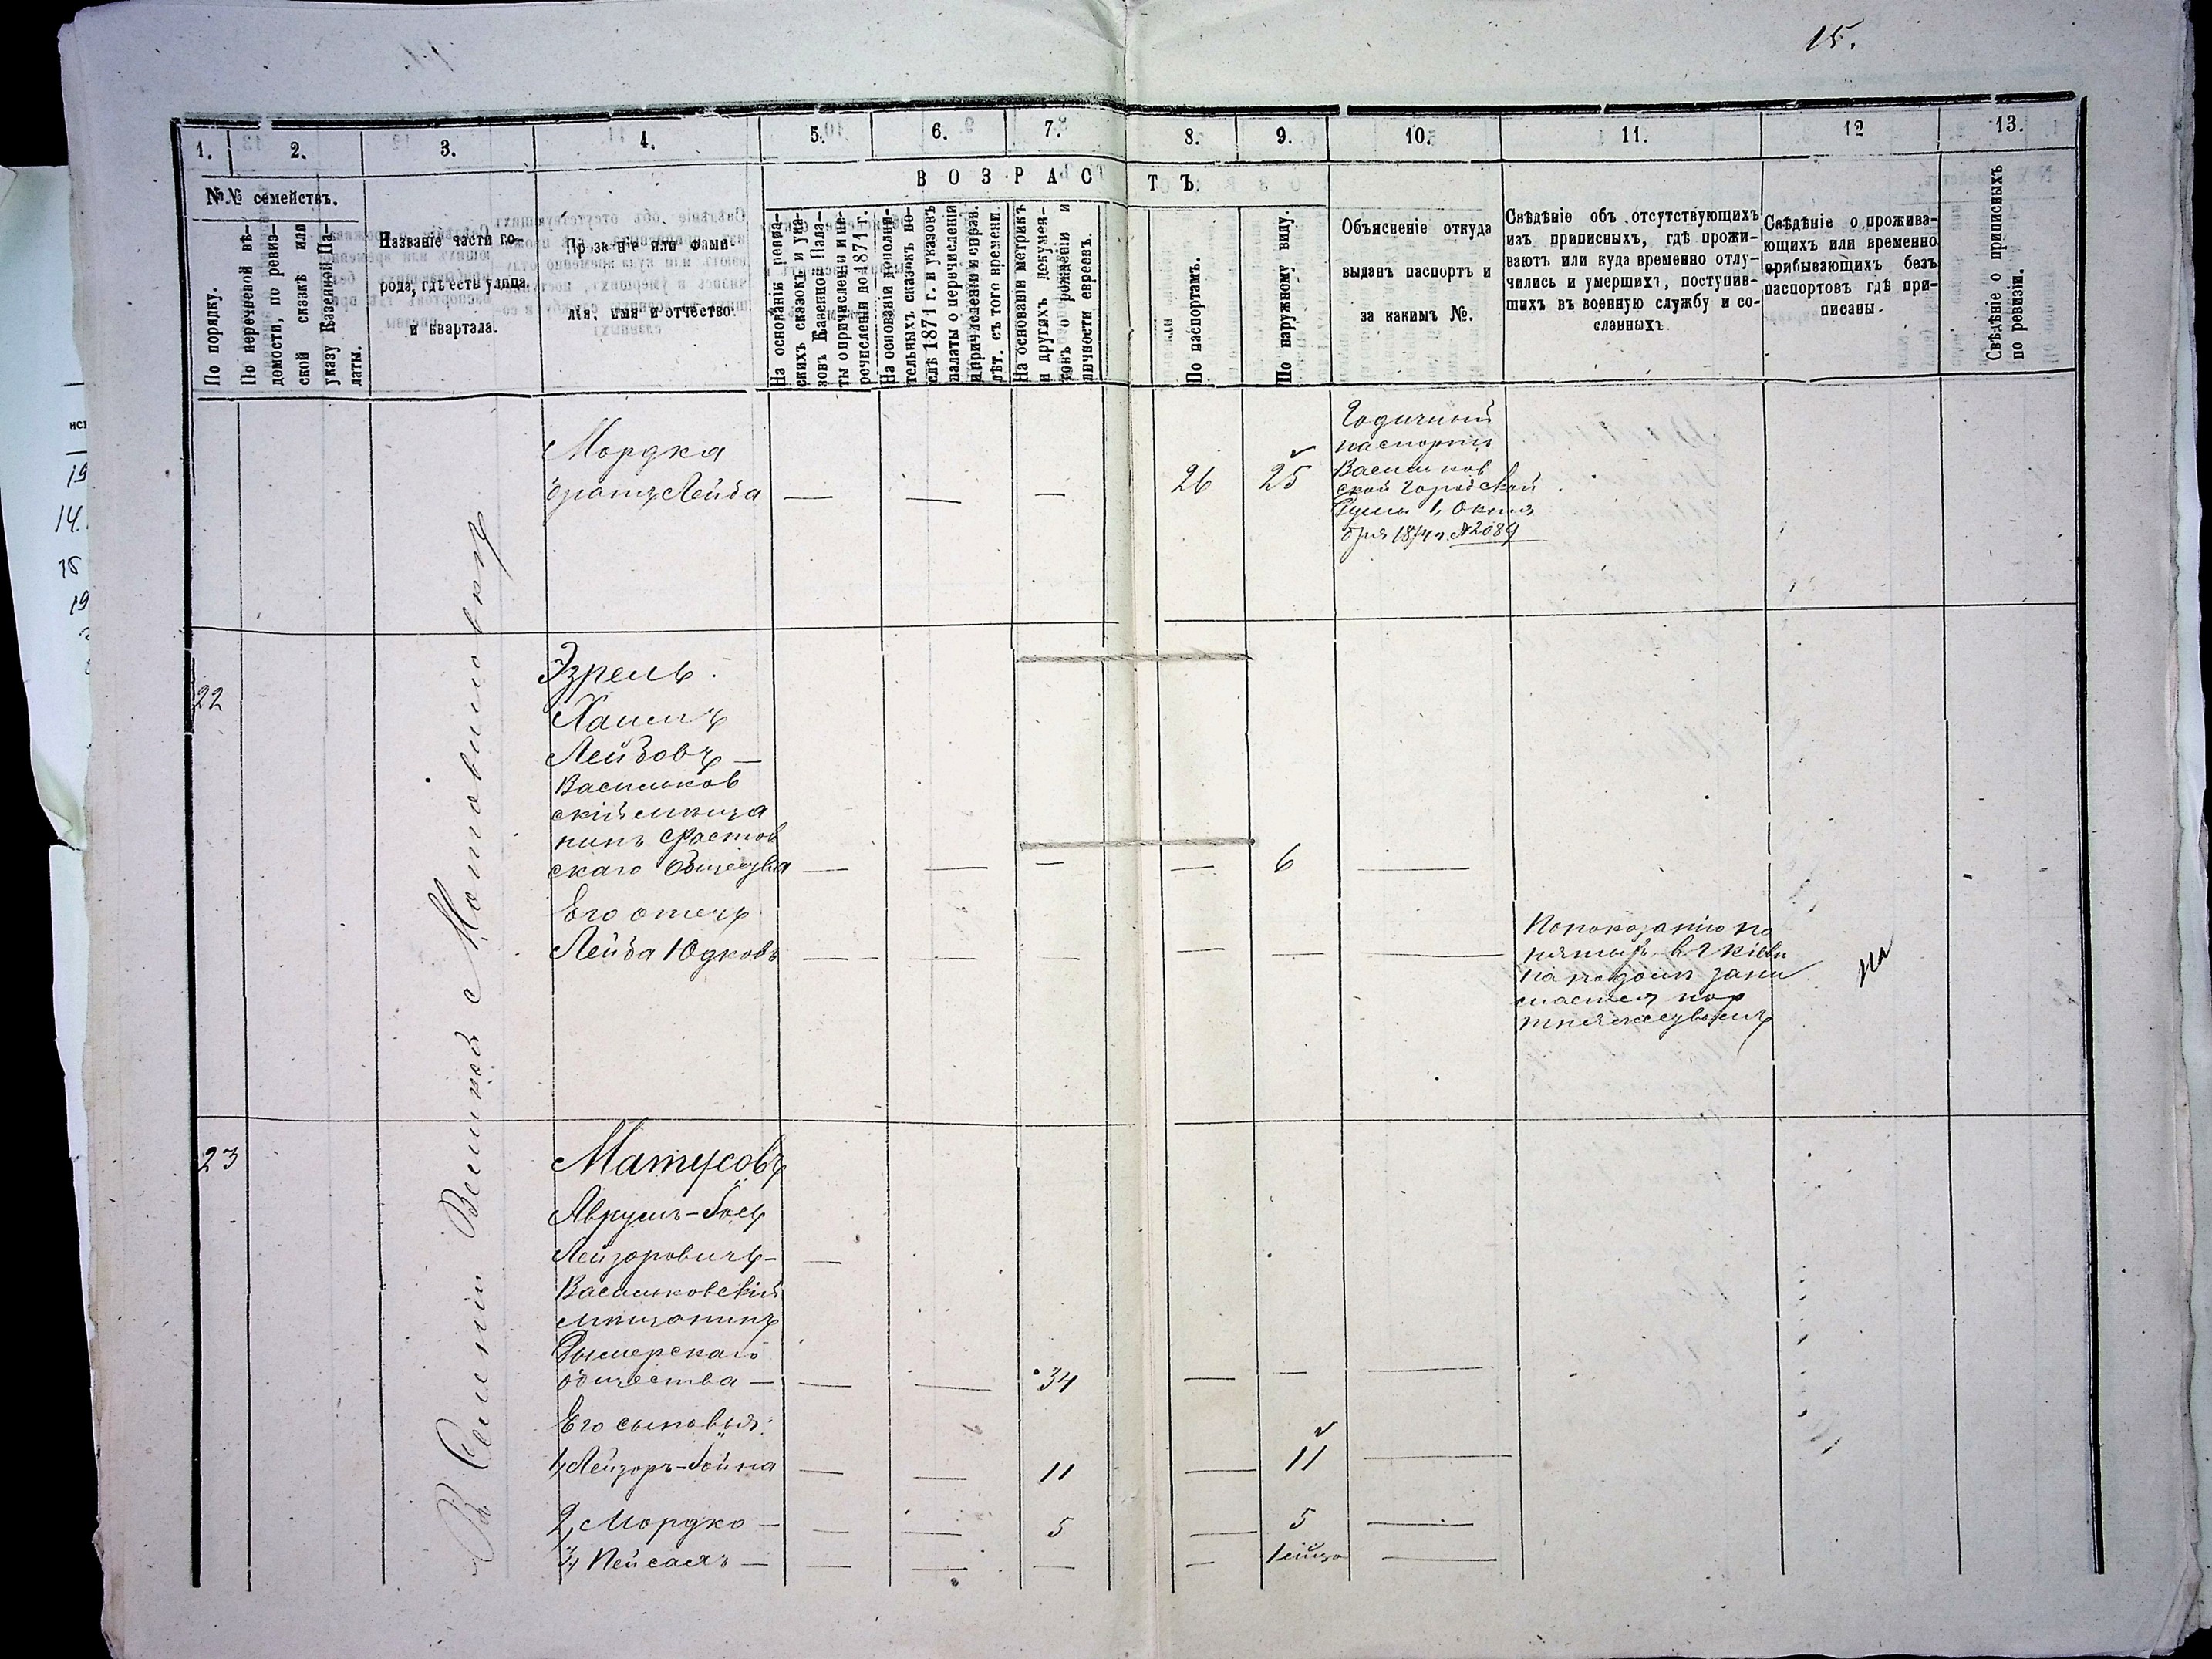 15.
1.
2.
3.
4.
5.
6.
7.
8.
9.
10.
11.
12
13.
№№ семействъ.
По порядку.
По перечневой вѣ-
домости, по ревиз-
ской сказкѣ или
указу Казенной Па-
латы.
Названіе части го-
рода, гдѣ есть улица
и квартала.
Прозваніе или фами-
лія, имя и отчество.
ВОЗРАСТЪ.
На основаніи ревиз-
скихъ сказокъ и ука-
зовъ Казенной Пала-
ты о причисленіи и пе-
речисленіи до 1871 г.
На основаніи дополни-
тельныхъ сказокъ по-
слѣ 1871 г. и указовъ
палаты о перечисленіи
и причисленіи и справ.
лѣт. съ того времени.
На основаніи метрикъ
и другихъ докумен-
товъ о рожденіи и
личности евреевъ.
По паспортамъ.
По наружному виду.
Объясненіе откуда
выданъ паспортъ и
за какимъ №.
Свѣдѣніе объ отсутствующихъ
изъ приписныхъ, гдѣ прожи-
ваютъ или куда временно отлу-
чились и умершихъ, поступив-
шихъ въ военную службу и со-
сланныхъ.
Свѣдѣніе о прожива-
ющихъ или временно
прибывающихъ безъ
паспортовъ гдѣ при-
писаны.
Свѣдѣніе о приписныхъ
по ревизіи.
Мордка
братъ Лейба — — — 26 25
Годичный
паспортъ
Васильков
ской Городской
Думы 1, Октя
бря 1874 г. №2089
Въ Селеніи Великой Мотовиловкѣ
22
Эзрель
Хаимъ
Лейбовъ —
Васильков
скій мѣща
нинъ Фастов
скаго Общества — — — — 6 —
Его отецъ
Лейба Юдковъ — — — — — —
По показанію по
нятыхъ въ г. Кіевѣ
зани
мается пор
тняжествомъ
23
Матусовъ
Аврумъ-Іосъ
Лейзоровичъ — —
Васильковскій
мѣщанинъ
Дымерскаго
общества — — — 34 — — —
Его сыновья:
1, Лейзоръ-Іойна — — 11 — 11 —
2, Мордко — — — 5 — 5 —
3, Пейсахъ — — — — —